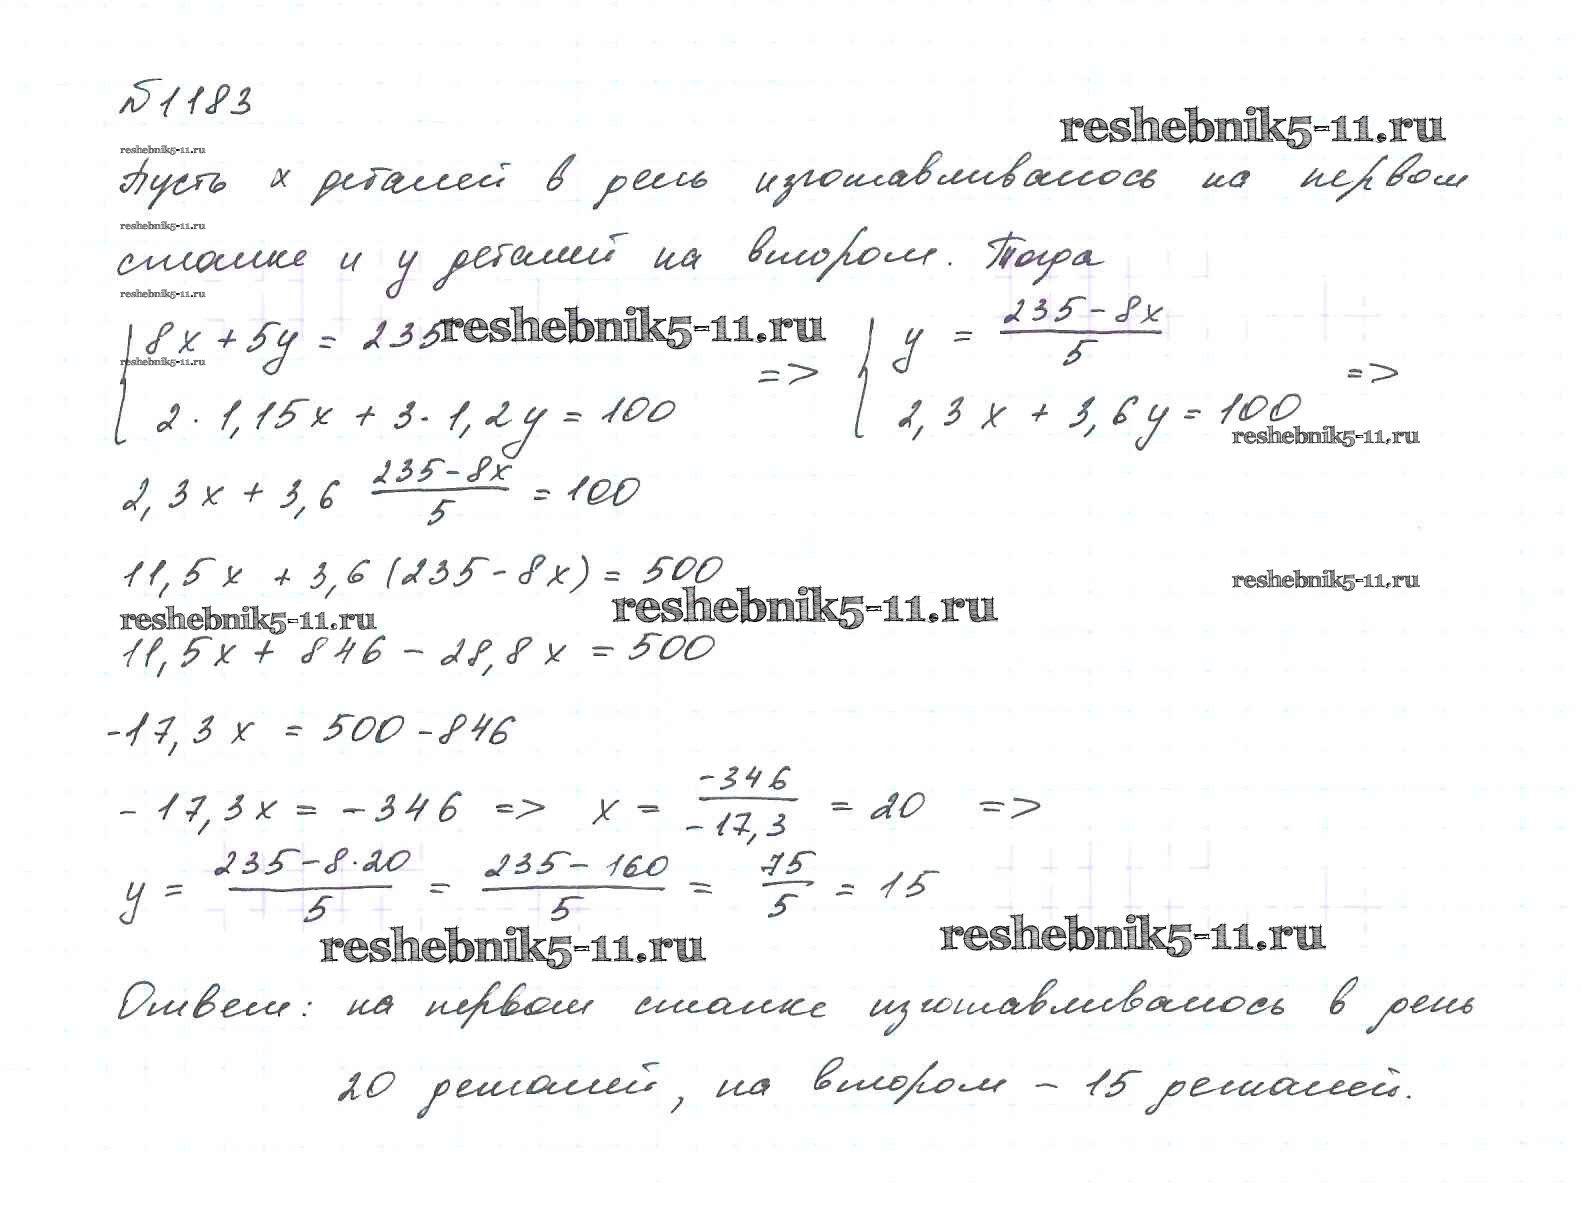 №1183
reshebnik5-11.ru
reshebnik5-11.ru
Пусть x деталей в день изготавливалось на первом
reshebnik5-11.ru
станке и y деталей на втором. Тогда
reshebnik5-11.ru
8x + 5y = 235 reshebnik5-11.ru => y = (235 - 8x)/5 =>
reshebnik5-11.ru
2 · 1,15x + 3 · 1,2y = 100 2,3x + 3,6y = 100
reshebnik5-11.ru
2,3x + 3,6 (235 - 8x)/5 = 100
11,5x + 3,6(235 - 8x) = 500
reshebnik5-11.ru
reshebnik5-11.ru reshebnik5-11.ru
11,5x + 846 - 28,8x = 500
-17,3x = 500 - 846
-17,3x = -346 => x = -346/-17,3 = 20 =>
y = (235 - 8·20)/5 = (235 - 160)/5 = 75/5 = 15
reshebnik5-11.ru reshebnik5-11.ru
Ответ: на первом станке изготавливалось в день
20 деталей, на втором - 15 деталей.